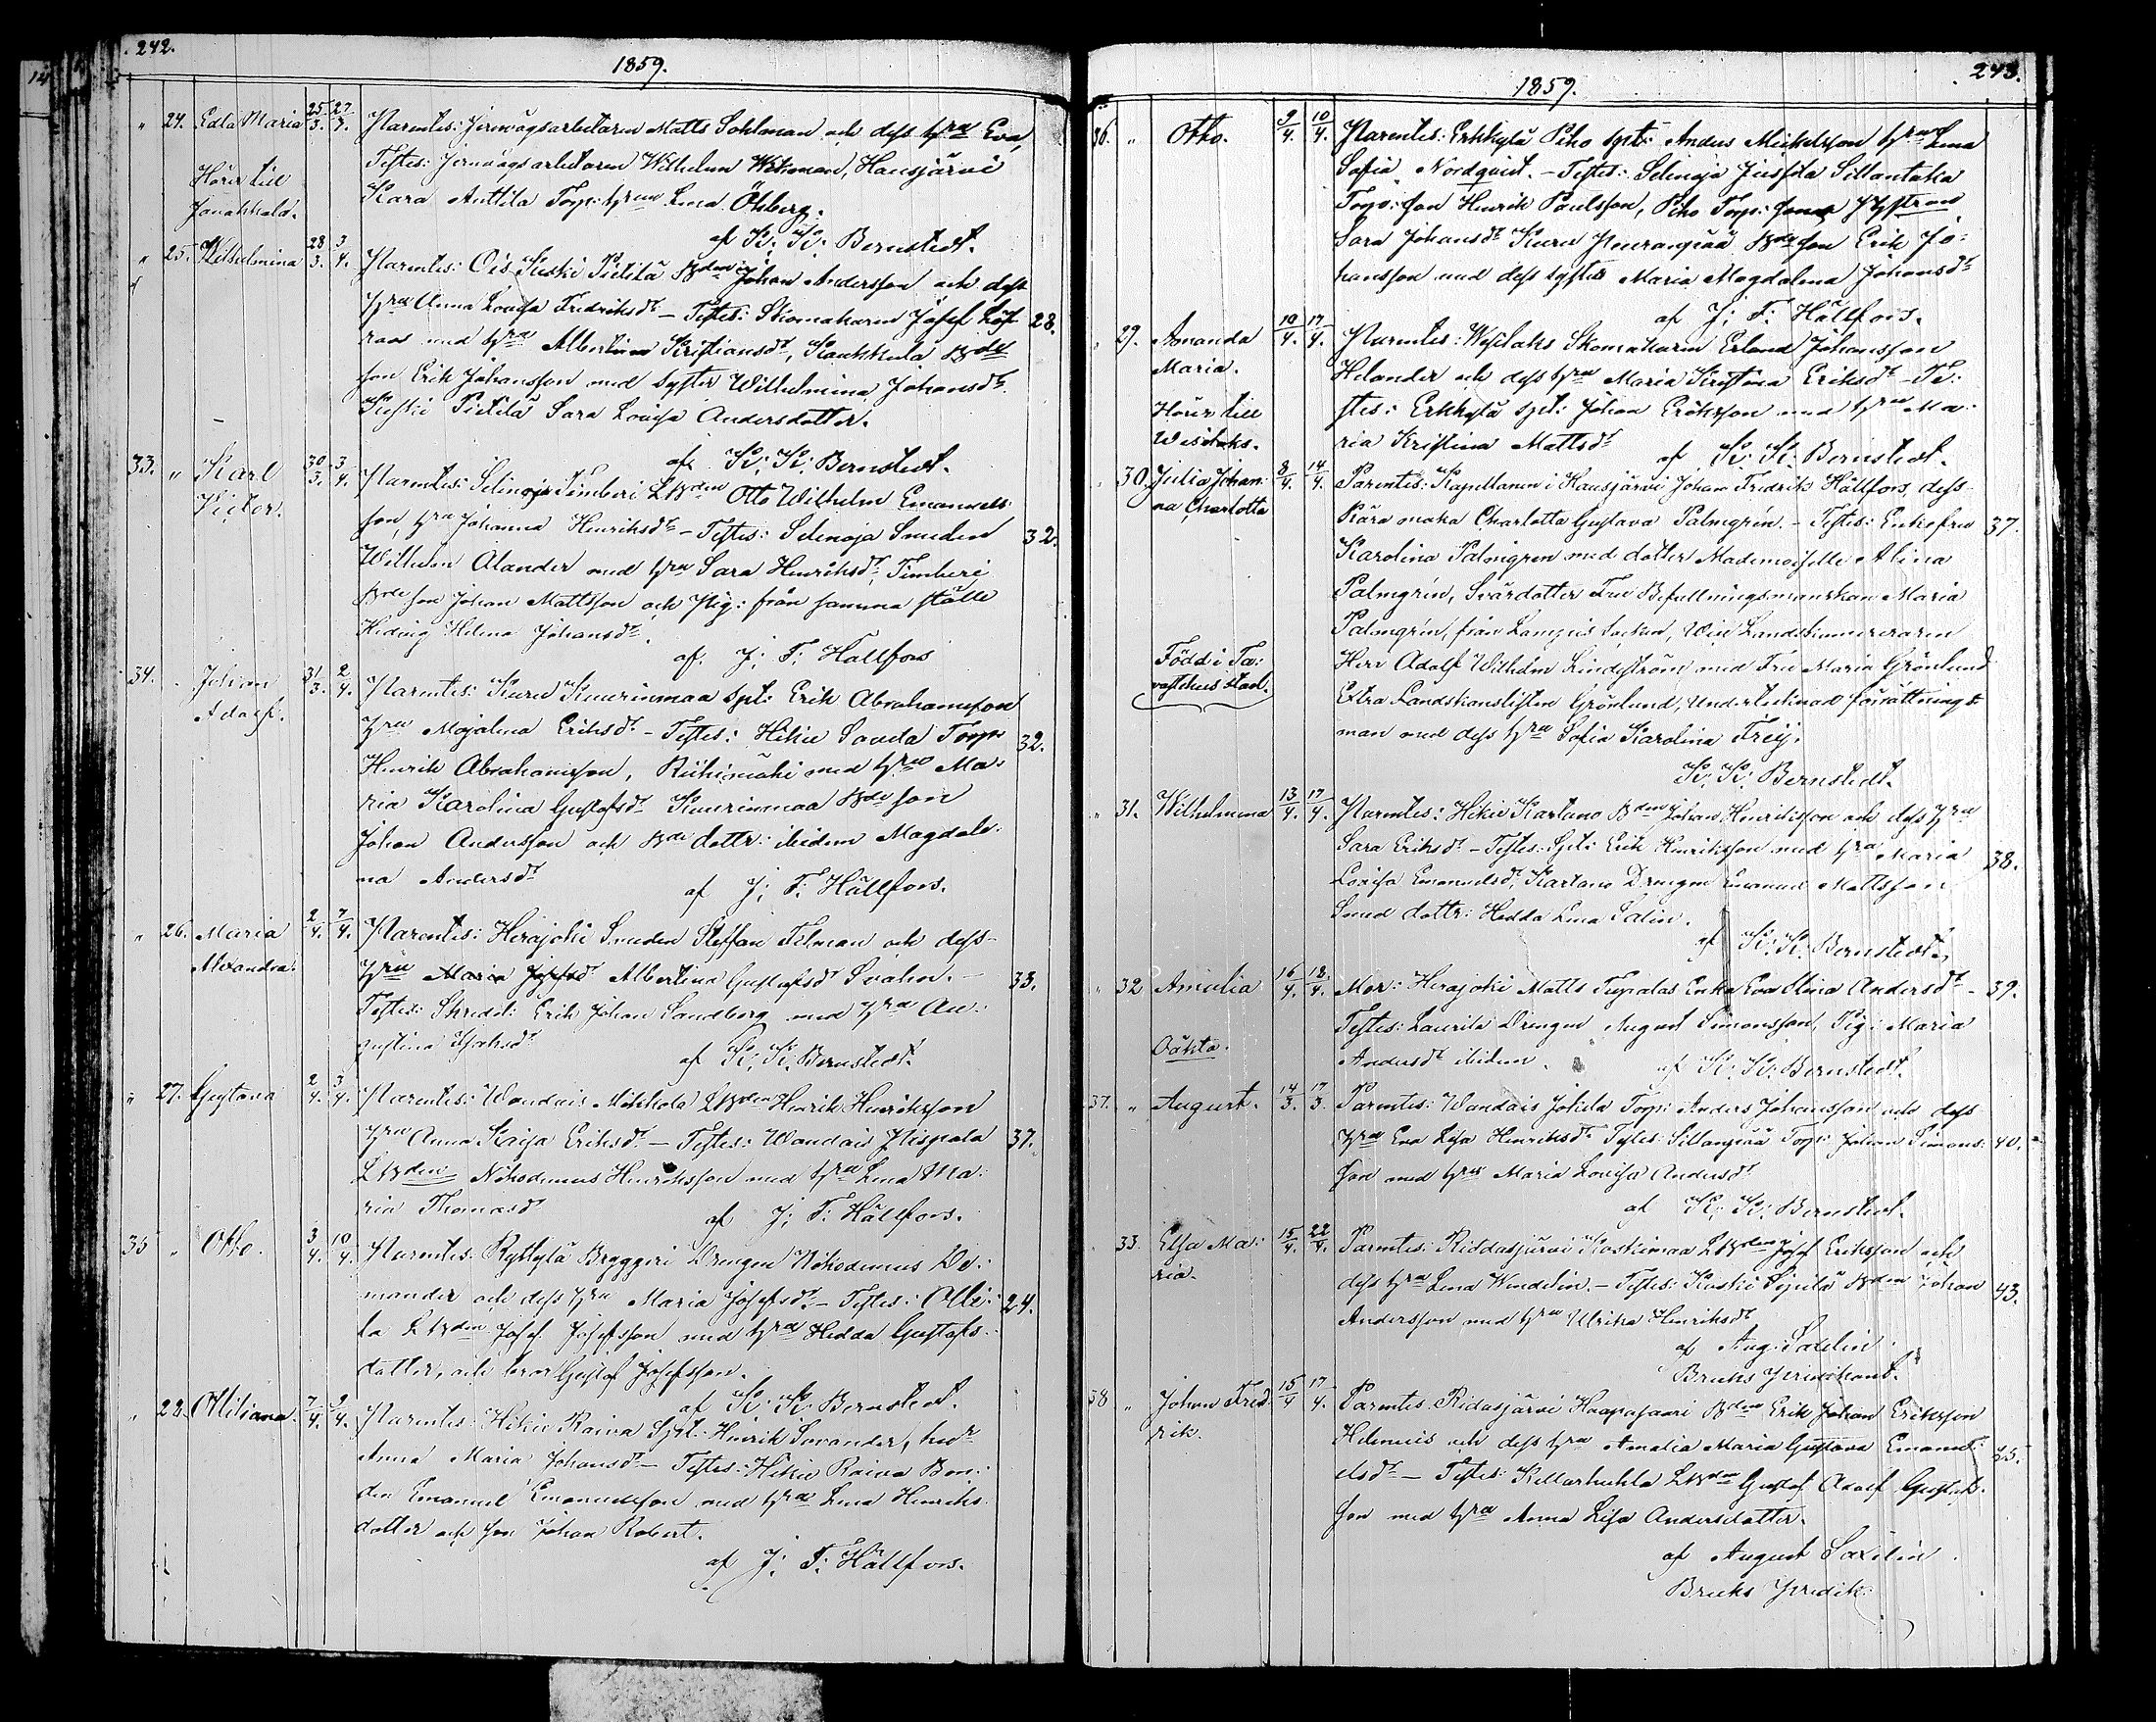 242.
1859.
" 24. Edla Maria 25/3. 27/3. Parentes: Jernvägsarbetaren Matts Sohlman och dess hru Eva,
Testes: Jernvägsarbetaren Wilhelm Wikman, Hausjärvi
Hörer till
Kara Anttila Torp: hrun Lena Öhberg.
Janakkala.
af K: K: Bernstedt.
" 25. Wilhelmina 28/3. 3/4. Parentes: Ois Puski Pietilä Bden Johan Andersson och dess
hru Anna Lovisa Fredriksdt – Testes: Skomakaren Josef Löf
28.
med hru Albertina Kristiansdt, Karhkula Bde
son Erik Johansson med syster Wilhelmina Johansdt
Pietilä Sara Lovisa Andersdotter.
af K: K: Bernstedt.
33. " Karl 30/3. 3/4. Parentes: Selinoja Timberi LBden Otto Wilhelm Emanuels
Victor.
son, hru Johanna Henriksdt – Testes: Selenoja Smeden
32.
Wilhelm Alander med hru Sara Henriksdt, Timberi
Bde son Johan Mattsson och Pig: från samma ställe
Hedvig Helena Johansdt.
af J: F: Hällfors
34. Johan 31/3. 2/4. Parentes: Kuru Kuurinmaa Spt: Erik Abrahamsson
Adolf.
hru Majalena Eriksdt – Testes: Hikie Torp:
32.
Henrik Abrahamsson, Riihimäki med hru Ma-
ria Karolina Gustafsdt Kuurinmaa Bde son
Johan Andersson och Bde dottr: ibidem Magdale-
na Andersdt
af J: F: Hällfors.
" 26. Maria 2/4. 7/4. Parentes: Herajoki Smeden Steffan Tilman och dess
Alexandra.
hru Maria Josefsdt Albertina Gustafsdt Svahn. –
33.
Testes: Skredd: Erik Johan Sandberg med hru Au-
gustina Isaksdt
af K: K: Bernstedt.
" 27. Gustava 2/4. 3/4. Parentes: Wandais Mikkola LBden Henrik Henriksson
hru Anna Kaisa Eriksdt – Testes: Wandais Piispala
37.
LBden Nikodemus Henriksson med hru Lena Ma-
ria Thomasdt
af J: F: Hällfors.
35 " Otto. 3/4. 10/4. Parentes: Ryttylä Bryggeri Drengen Nikodemus We-
mander och dess hru Maria Josefsdt. – Testes: Olli-
24.
la LBden Josef Josefsson med hru Hedda Gustafs-
dotter, och bror Gustaf Josefsson.
af K: K: Bernstedt.
" 28. Miliana. 7/4. 9/4. Parentes: Hikie Raiva Spt: Henrik Sovander, hru
Anna Maria Johansdt – Testes: Hikie Raiva Bon-
den Emanuel Emanuelsson med hru Lena Henriks-
dotter och son Johan Robert.
af J: F: Hällfors.
243.
1859.
36. " Otto. 9/4. 10/4. Parentes: Erkkylä Piho Spt: Anders Mickelsson hru Lena
Sofia Nordqvist. – Testes: Selinoja Sillantaka
Torp: son Henrik Paulsson, Piho Torp:
Sara Johansdt Kuru Bde son Erik Jo-
hansson med dess syster Maria Magdalena Johansdt
af J: F: Hällfors.
" 29. Amanda 10/4. 17/4. Parentes: Wisilaks Skomakaren Erland Johansson
Maria.
Helander och dess hru Maria Kristina Eriksdt – Te-
Hörer till
stes: Erkkylä Spt: Johan Eriksson med hru Ma-
Wisilaks.
ria Kristina Mattsdt
af K: K: Bernstedt.
" 30. Julia Johan- 8/4. 14/4. Parentes: Kapellanen i Hausjärvi Johan Fredrik Hällfors, dess
na Charlotta
kära maka Charlotta Gustava Palmgrén. – Testes: Enkefru
37.
Karolina Palmgren med dotter Mademoiselle Alina
Palmgrén, Svärdotter Fru Befallningsmanskan Maria
Palmgrén, från Lampis socken, Landskamreraren
Född i Ta-
Herr Adolf Wilhelm Lindström med Fru Maria Grönlund
vastehus stad.
Extra Landskanslisten Grönlund, Undertecknad förrättnings-
man med dess hru Sofia Karolina Frey.
K: K: Bernstedt.
" 31. Wilhelmina 13/4. 17/4. Parentes: Hikie Kartano Bden Johan Henriksson och dess hru
Sara Eriksdt – Testes: Spt: Erik Henriksson med hru Maria
38.
Lovisa Emanuelsdt, Kartano Drengen Emanuel Mattsson
Smed dottr: Hedda Lena Salin.
af K: K: Bernstedt.
" 32 Amalia 16/4. 18/4. Mor: Herajoki Matts Tupalas Enka Eva Stina Andersdt –
39.
Testes: Laurila Drengen August Simonsson, Pig: Maria
Oäkta.
Andersdt ibidem.
af K: K: Bernstedt.
37. " August. 14/3. 17/3. Parentes: Wandais Jokela Torp: Anders Johansson och dess
hru Eva Lisa Henriksdt Testes: Sillanpää Torp: Johan Simons-
40.
son med hru Maria Lovisa Andersdt
af K: K: Bernstedt.
" 33. Elsa Ma- 15/4. 22/4. Parentes: Riddasjärvi Koskimaa LBden Josef Eriksson och
ria.
dess hru Lena Wendelin. – Testes: Koski Bden Johan
43.
Andersson med hru Ulrika Henriksdt
af Aug: Saxelin.
Bruks Predikant.
38 " Johan Fred- 15/4 17/4. Parentes Ridasjärvi Haapasaari Bden Erik Johan Eriksson
rik.
Helenius och dess hru Amalia Maria Gustava Emanu-
elsdt – Testes: Kellarhuhta LBden Gustaf Adolf Gustafs-
son med hru Anna Lisa Andersdotter.
af August Saxelin.
Bruks Predik: